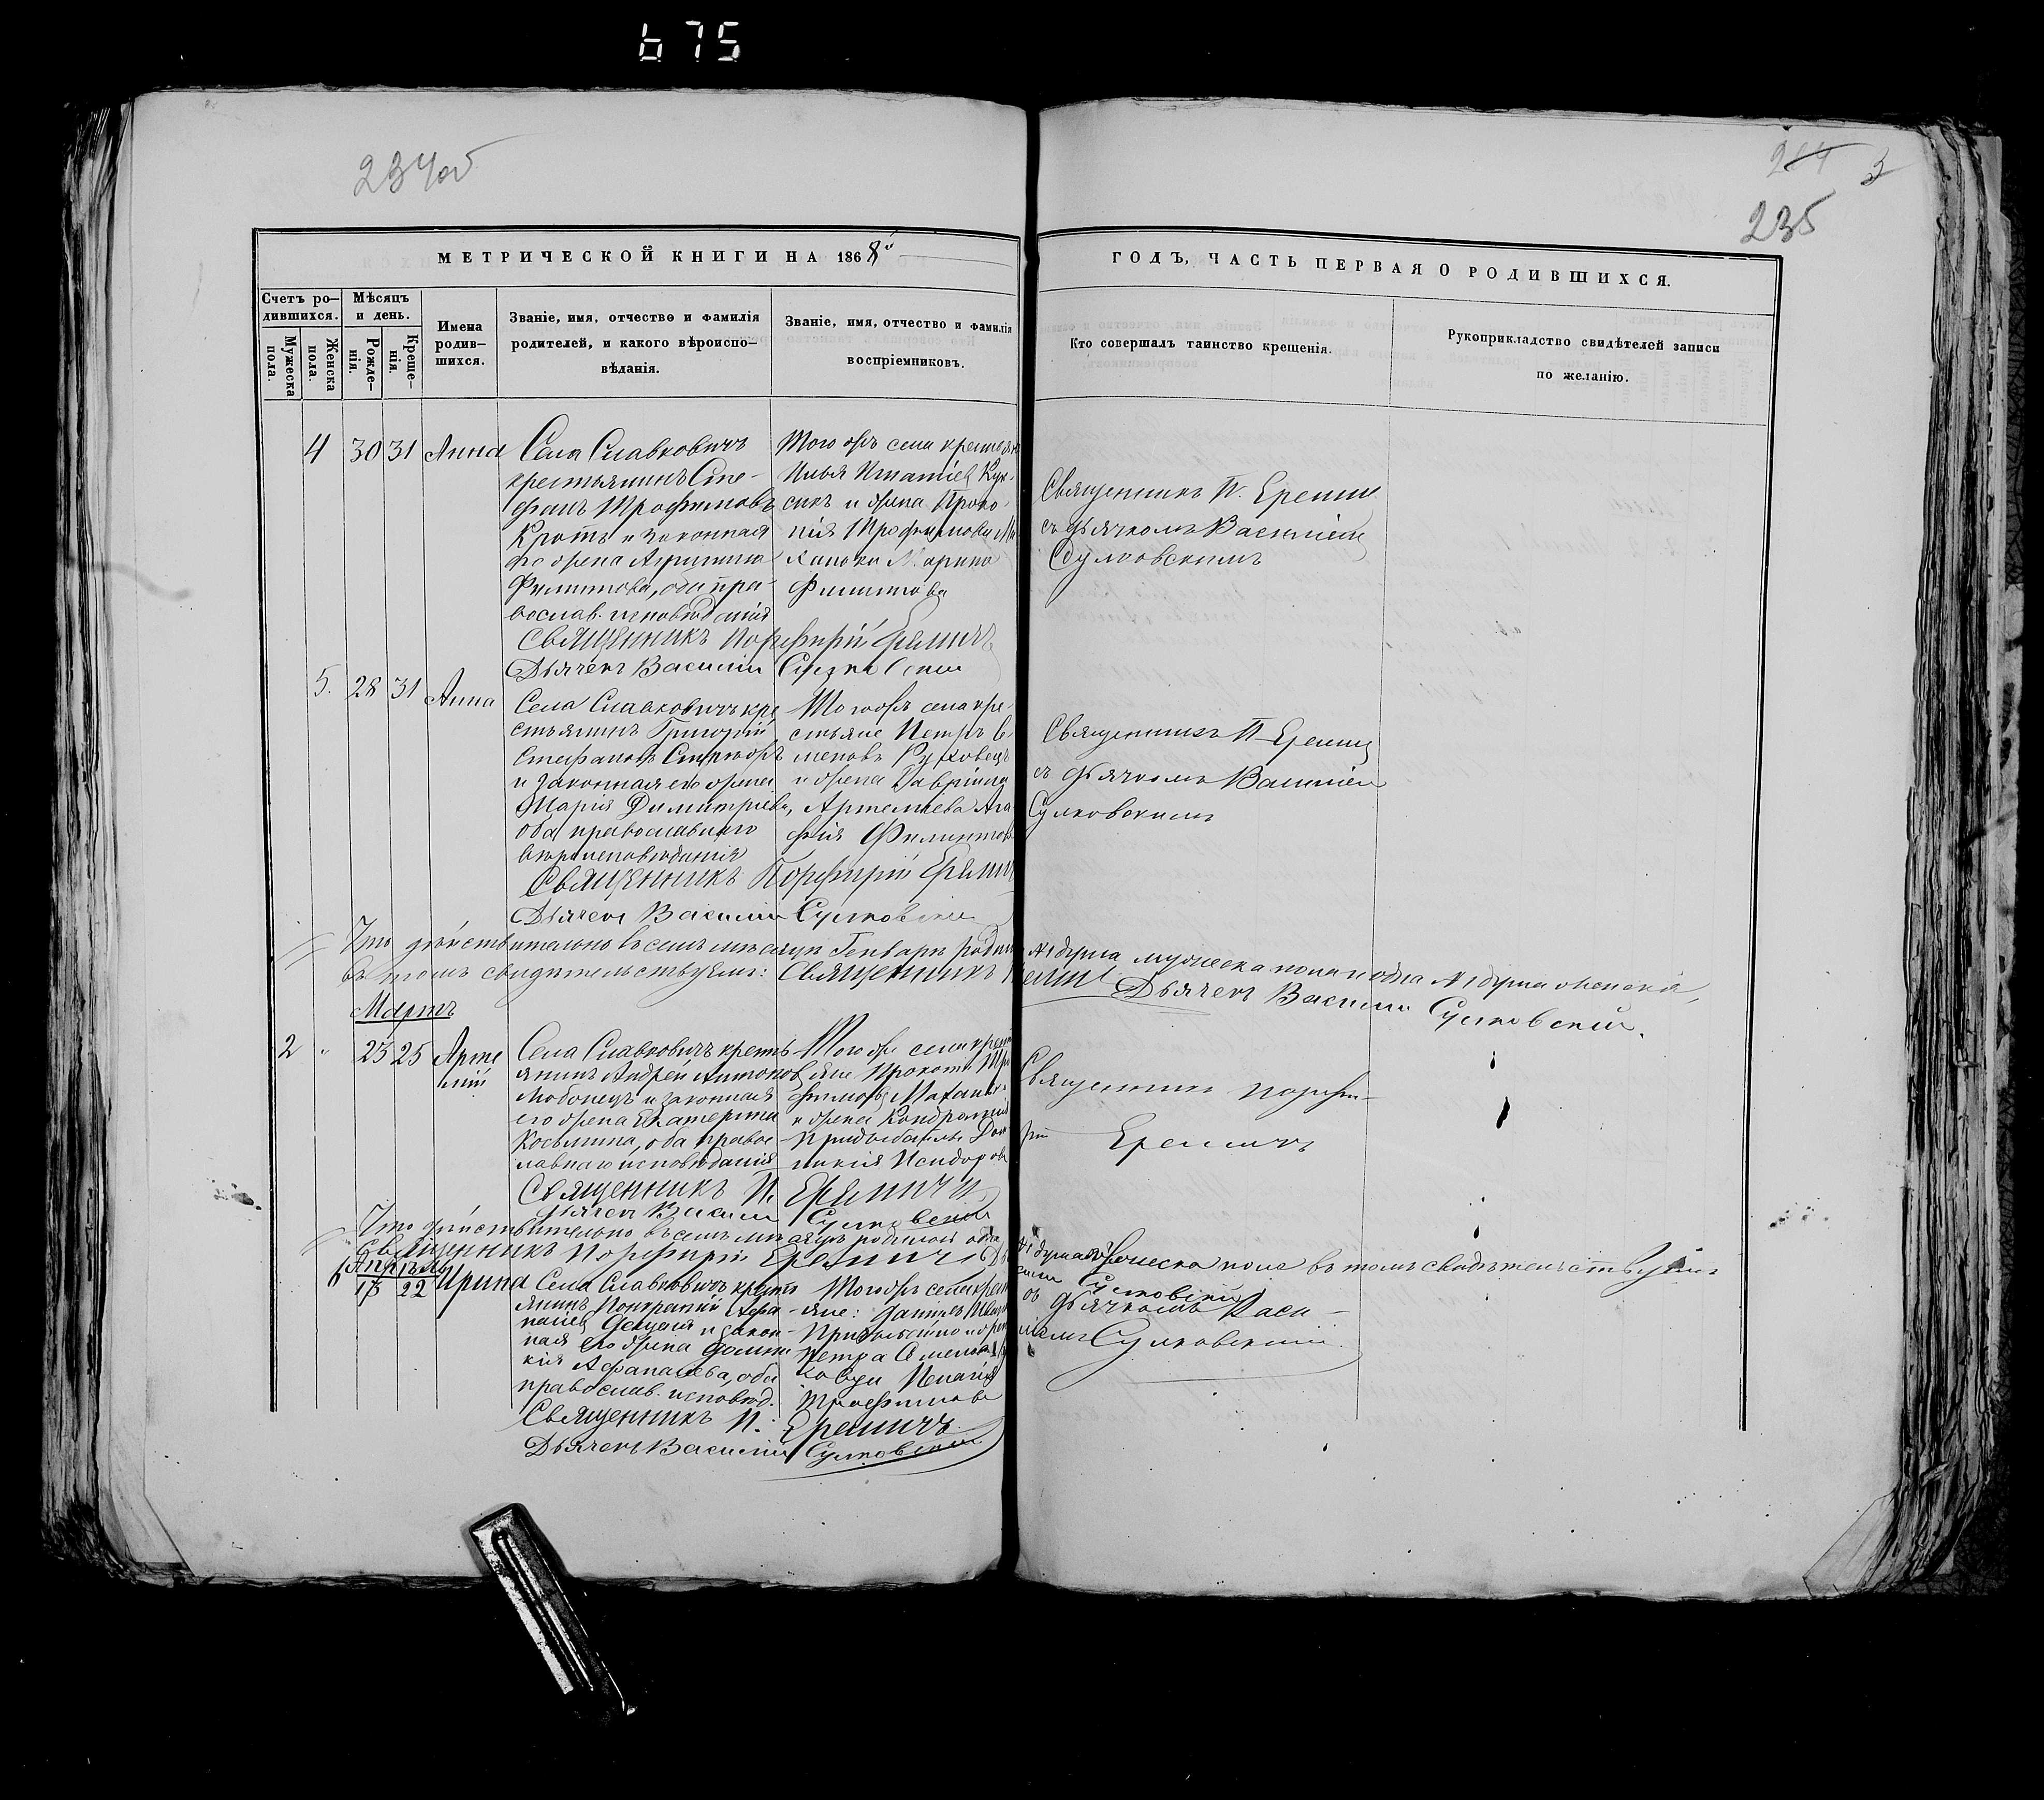 675
234об
3
235
МЕТРИЧЕСКОЙ КНИГИ НА 1868й
ГОДЪ, ЧАСТЬ ПЕРВАЯ О РОДИВШИХСЯ.
Счетъ ро-
дившихся.
Мужеска пола.
Женска пола.
Мѣсяцъ
и день.
Рожде-
нія.
Креще-
нія.
Имена
родив-
шихся.
Званіе, имя, отчество и фамилія
родителей, и какого вѣроиспо-
вѣданія.
Званіе, имя, отчество и фамилія
воспріемниковъ.
Кто совершалъ таинство крещенія.
Рукоприкладство свидѣтелей записи
по желанію.
4 30 31 Анна
Села Славковичъ
крестьянинъ Сте-
фанъ Трофимовъ
Кротъ и законная
его жена Агрипина
Филипова, оба пра-
вослав. исповѣданія
Того жъ села крестьяне
Илья Игнатіев
и жена Проко-
пія Трофимова
Марина
Филипова
Священникъ П. Еремич
съ дьячкомъ Василіем
Сулковскимъ
Священникъ Порфирій Еремичъ
Дьячекъ Василій Сулковскій
5. 28 31 Анна
Села Славковичъ кре
стьянинъ Григорій
Стефановъ
и законная его жена
Марія Димитріева,
оба православнаго
вѣроисповѣданія
Того жъ села кре-
стьяне Петръ Се
меновъ
и жена Гавріила
Артемьева Ага-
фія Филипова
Священникъ П. Еремич
съ дьячкомъ Василіем
Сулковскимъ
Священникъ Порфирій Еремич
Дьячекъ Василій Сулковскій
Что дѣйствительно въ семъ мѣсяцѣ Генварѣ родилось №1 душа мужеска пола и одна №1 душа женска,
въ томъ свидѣтельствуемъ: Священникъ Дьячекъ Василій Сулковскій.
Мартъ
2 " 23 25 Арте
мій
Села Славковичъ кресть
янинъ Андрей Антонов
Любонецъ и законная
его жена Екатерина
Косьмина, оба право-
славнаго исповѣданія
Того же села крест
яне Прокопій Тро
фимовъ
и жена Кондратія
Исидорова
Священникъ Порфи-
рій Еремичъ
Священникъ П. Еремичъ
Дьячекъ Василій Сулковскій
Что дѣйствительно въ семъ мѣсяцѣ родилась одна №1 душа мужеска пола въ томъ свидѣтельствуемъ
Священникъ Порфирій Еремичъ Сулковскій
Апрѣль
6 17 22 Ирина
Села Славковичъ кресть
янинъ Понкратій Афа-
насіев и закон-
ная его жена
Афанасьева, оба
православ. исповѣд.
Того жъ села крест
яне: Даніилъ
Петра Семенова
Трофимова
дьячкомъ Васи-
ліемъ Сулковскій
Священникъ П. Еремичъ
Дьячекъ Василій Сулковскій